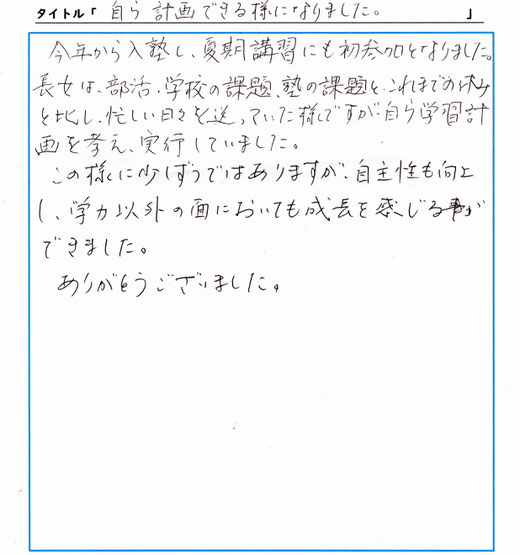 タイトル「自ら計画できる様になりました。」
今年から入塾し、夏期講習にも初参加となりました。
長女は、部活、学校の課題、塾の課題と、これまでのお休み
と比し、忙しい日々を送っていた様ですが、自ら学習計
画を考え、実行していました。
この様に少しずつではありますが、自主性も向上
し、学力以外の面においても成長を感じる事が
できました。
ありがとうございました。